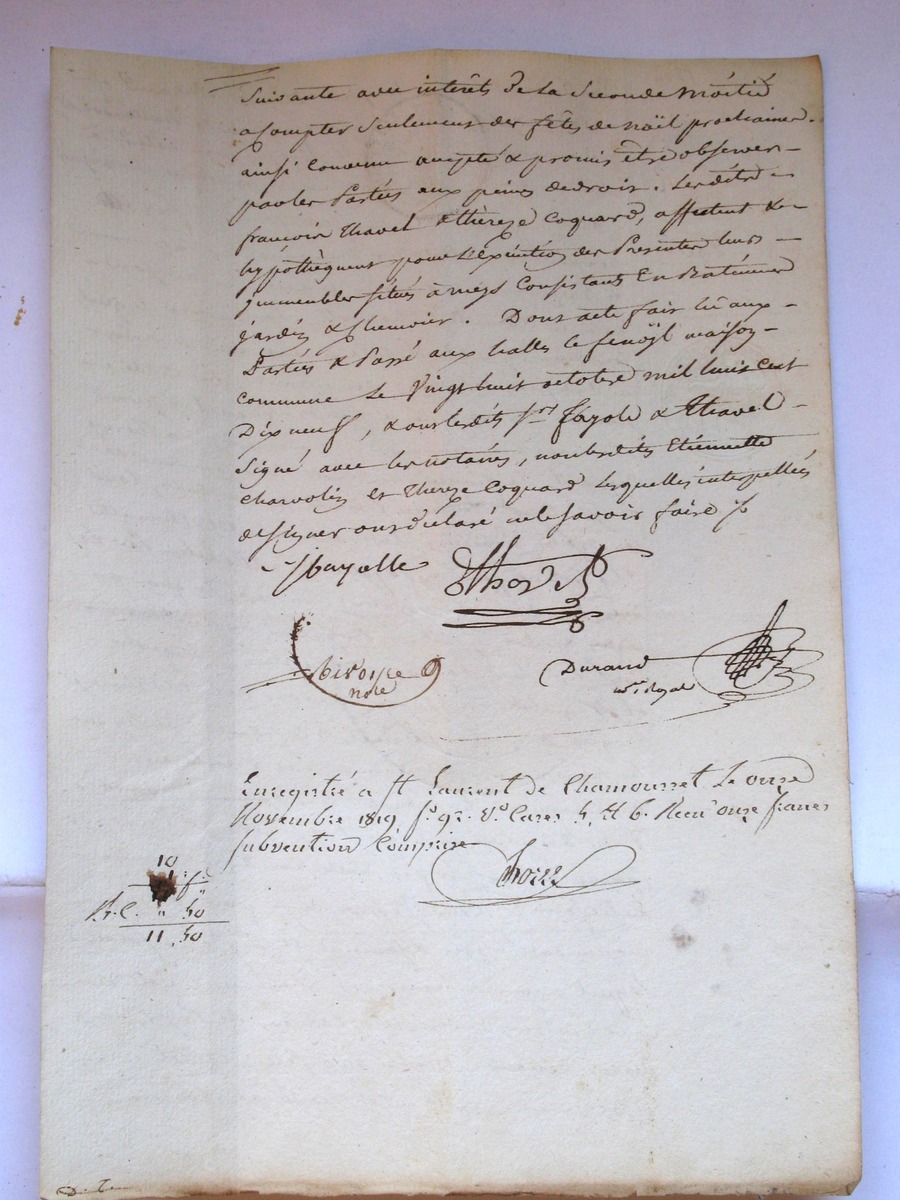 Suivante avec intérêts de la Seconde Moitié
a Compter Seulement des fêtes de noël prochaines.
ainsi Convenu accepté & promis être observer
par les Parties aux peines de droit. Lesdits
françois Thavel & thèreze Coquard, affectent &
hypothèquent pour L'éxécution des Presentes leurs
jmmeubles situés à meys Consistants En Batimens
jardin & Chenevier. Dont acte fait lû aux
Parties & Passé aux halles le fenöyl maison
commune Le Vingt huit octobre mil huit Cent
Dix neuf, & ont lesdits Srs fayole & Thavel
Signé avec les notaires, non lesdites Etiennette
Charvolin et Thereze Coquard Lesquelles interpellées
de signer ont déclaré ne le savoir faire
jfayolle
Durand
nre Royal
Enregistré a St Laurent de Chamousset Le onze
Novembre 1819 fo 92 Vo Cases 5, et 6. Recu onze francs
Subvention Comprise
10
11, 50